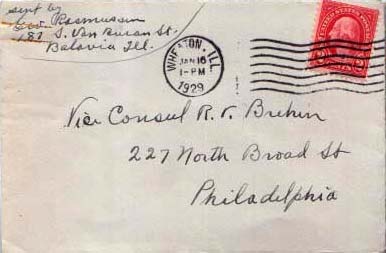 sent by
Geo Rasmussen
187 S. Van Buran St.
Batavia Ill.
WHEATON, ILL.
JAN 16
1-PM
1929
UNITED STATES POSTAGE
Vice Consul R. V.
227 North Broad St
Philadelphia